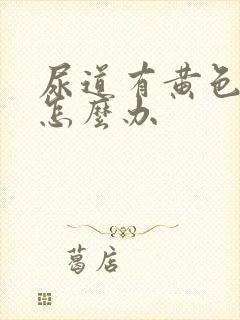 尿道有黄色
怎麼办
葛店